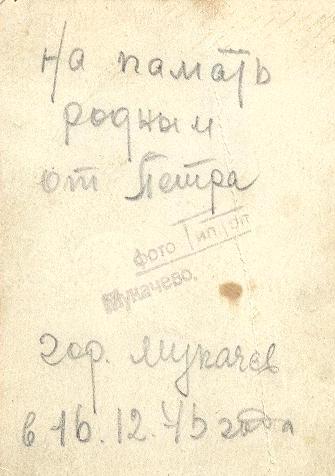 на память
родным
от Петра
фото
Мукачево.
гор. Мукачев
в 16.12.45 года